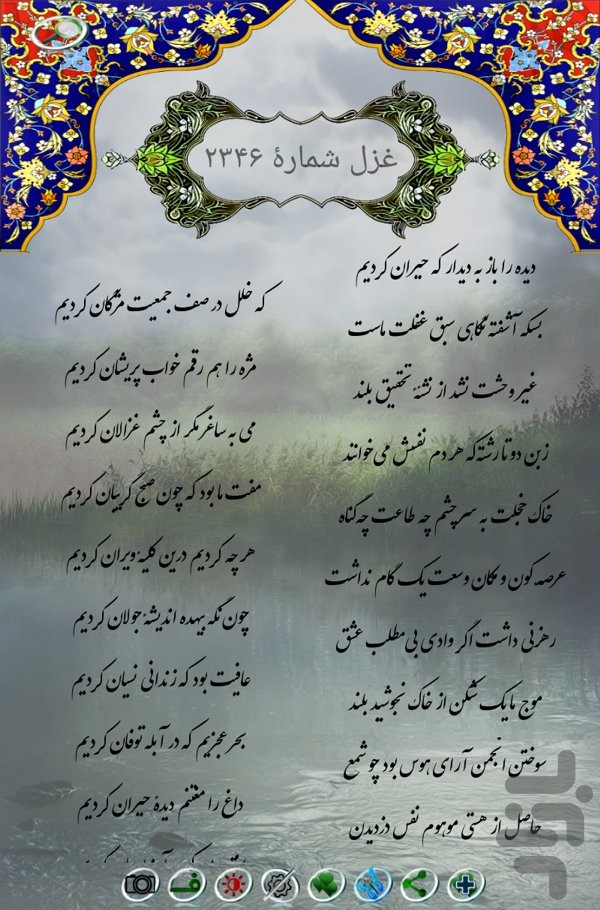 غزل شمارهٔ ۲۳۴۶
دیده را باز به دیدار که حیران کردیم
که خلل در صف جمعیت مژگان کردیم
بسکه آشفته نگاهی سبق غفلت ماست
مژه را هم رقم خواب پریشان کردیم
غیر وحشت نشد از نشئهٔ تحقیق بلند
می به ساغر مگر از چشم غزالان کردیم
زین دو تا رشته که هر دم نفسش می‌خوانند
مفت ما بود که چون صبح گریبان کردیم
خاک خجلت به سر چشم چه طاعت چه گناه
هر چه کردیم درین کلبهٔ ویران کردیم
عرصهٔ کون و مکان وسعت یک گام نداشت
چون نگه بیهده اندیشهٔ جولان کردیم
رهزنی داشت اگر وادی بی‌مطلب عشق
عافیت بود که زندانی نسیان کردیم
موج ما یک شکن از خاک نجوشید بلند
بحر عجزیم که در آبله توفان کردیم
سوختن انجمن آرای هوس بود چو شمع
داغ را مغتنم دیدهٔ حیران کردیم
حاصل از هستی موهوم نفس دزدیدن
بازار